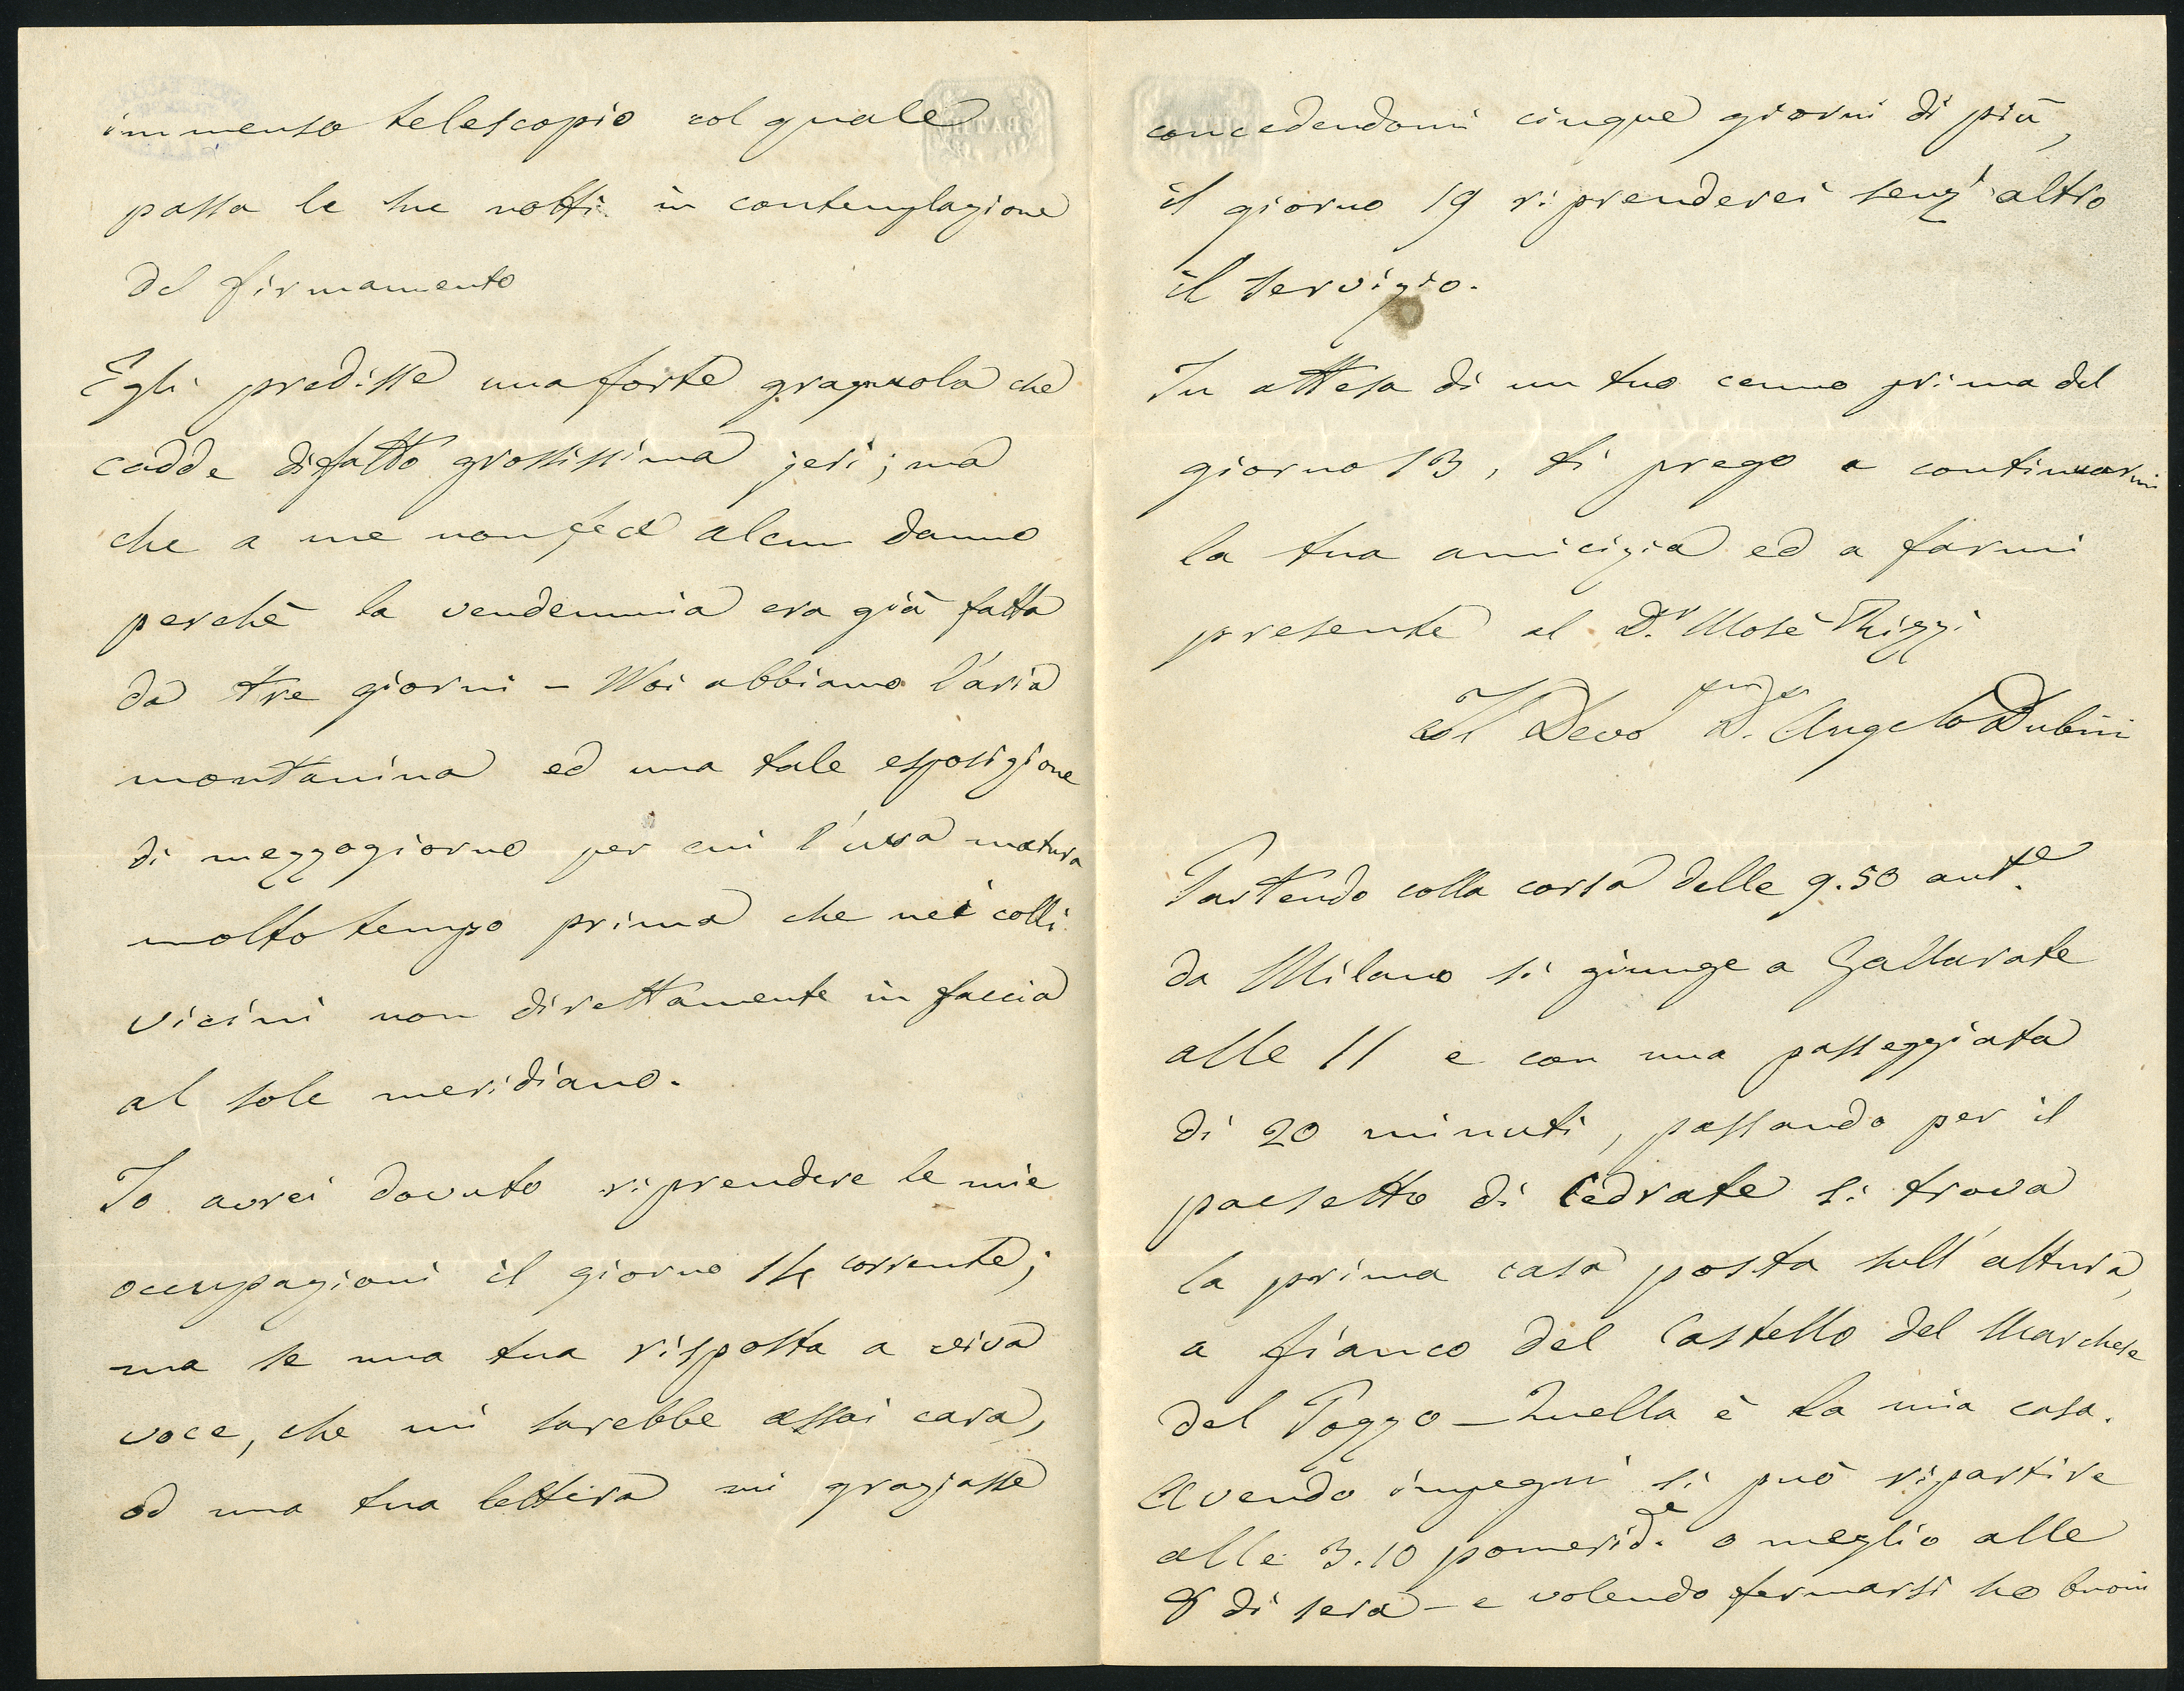 immenso telescopio col quale
passa le sue notti in contemplazione
del firmamento
Egli predisse una forte gragnuola che
cadde difatto grossissima jeri; ma
che a me non fece alcun danno
perchè la vendemmia era già fatta
da tre giorni - Noi abbiamo l'aria
montanina ed una tale esposizione
di mezzogiorno per cui l'uva matura
molto tempo prima che nei colli
vicini non direttamente in faccia
al sole meridiano.
Io avrei dovuto riprendere le mie
occupazioni il giorno 14 corrente;
ma se una tua risposta a viva
voce, che mi sarebbe assai cara,
od una tua lettera mi graziasse
concedendomi cinque giorni di più,
il giorno 19 riprenderei senz'altro
il servizio.
In attesa di un tuo cenno prima del
giorno 13, ti prego a continuarmi
la tua amicizia ed a farmi
presente al D.r Mosè Rizzi
Il Devo D.r Angelo Dubini
Partendo colla corsa delle 9.50 ant.e
da Milano si giunge a Gallarate
alle 11 e con una passeggiata
di 20 minuti, passando per il
paesetto di Cedrate si trova
la prima casa posta sull'altura,
a fianco del Castello del Marchese
del Pozzo - Quella è la mia casa.
Avendo impegni si può ripartire
alle 3.10 pomerid.e o meglio alle
8 di sera - e volendo fermarsi ho buoni